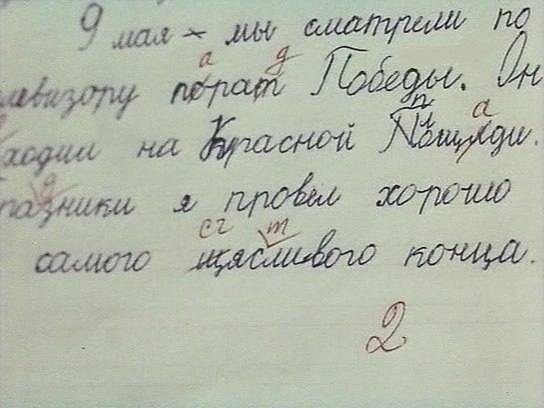 9 мая мы сматрели по
левизору порат Победы. Он
ходил на Красной Пощиди.
празники я провел хорошо
самого щясливого конца.
2